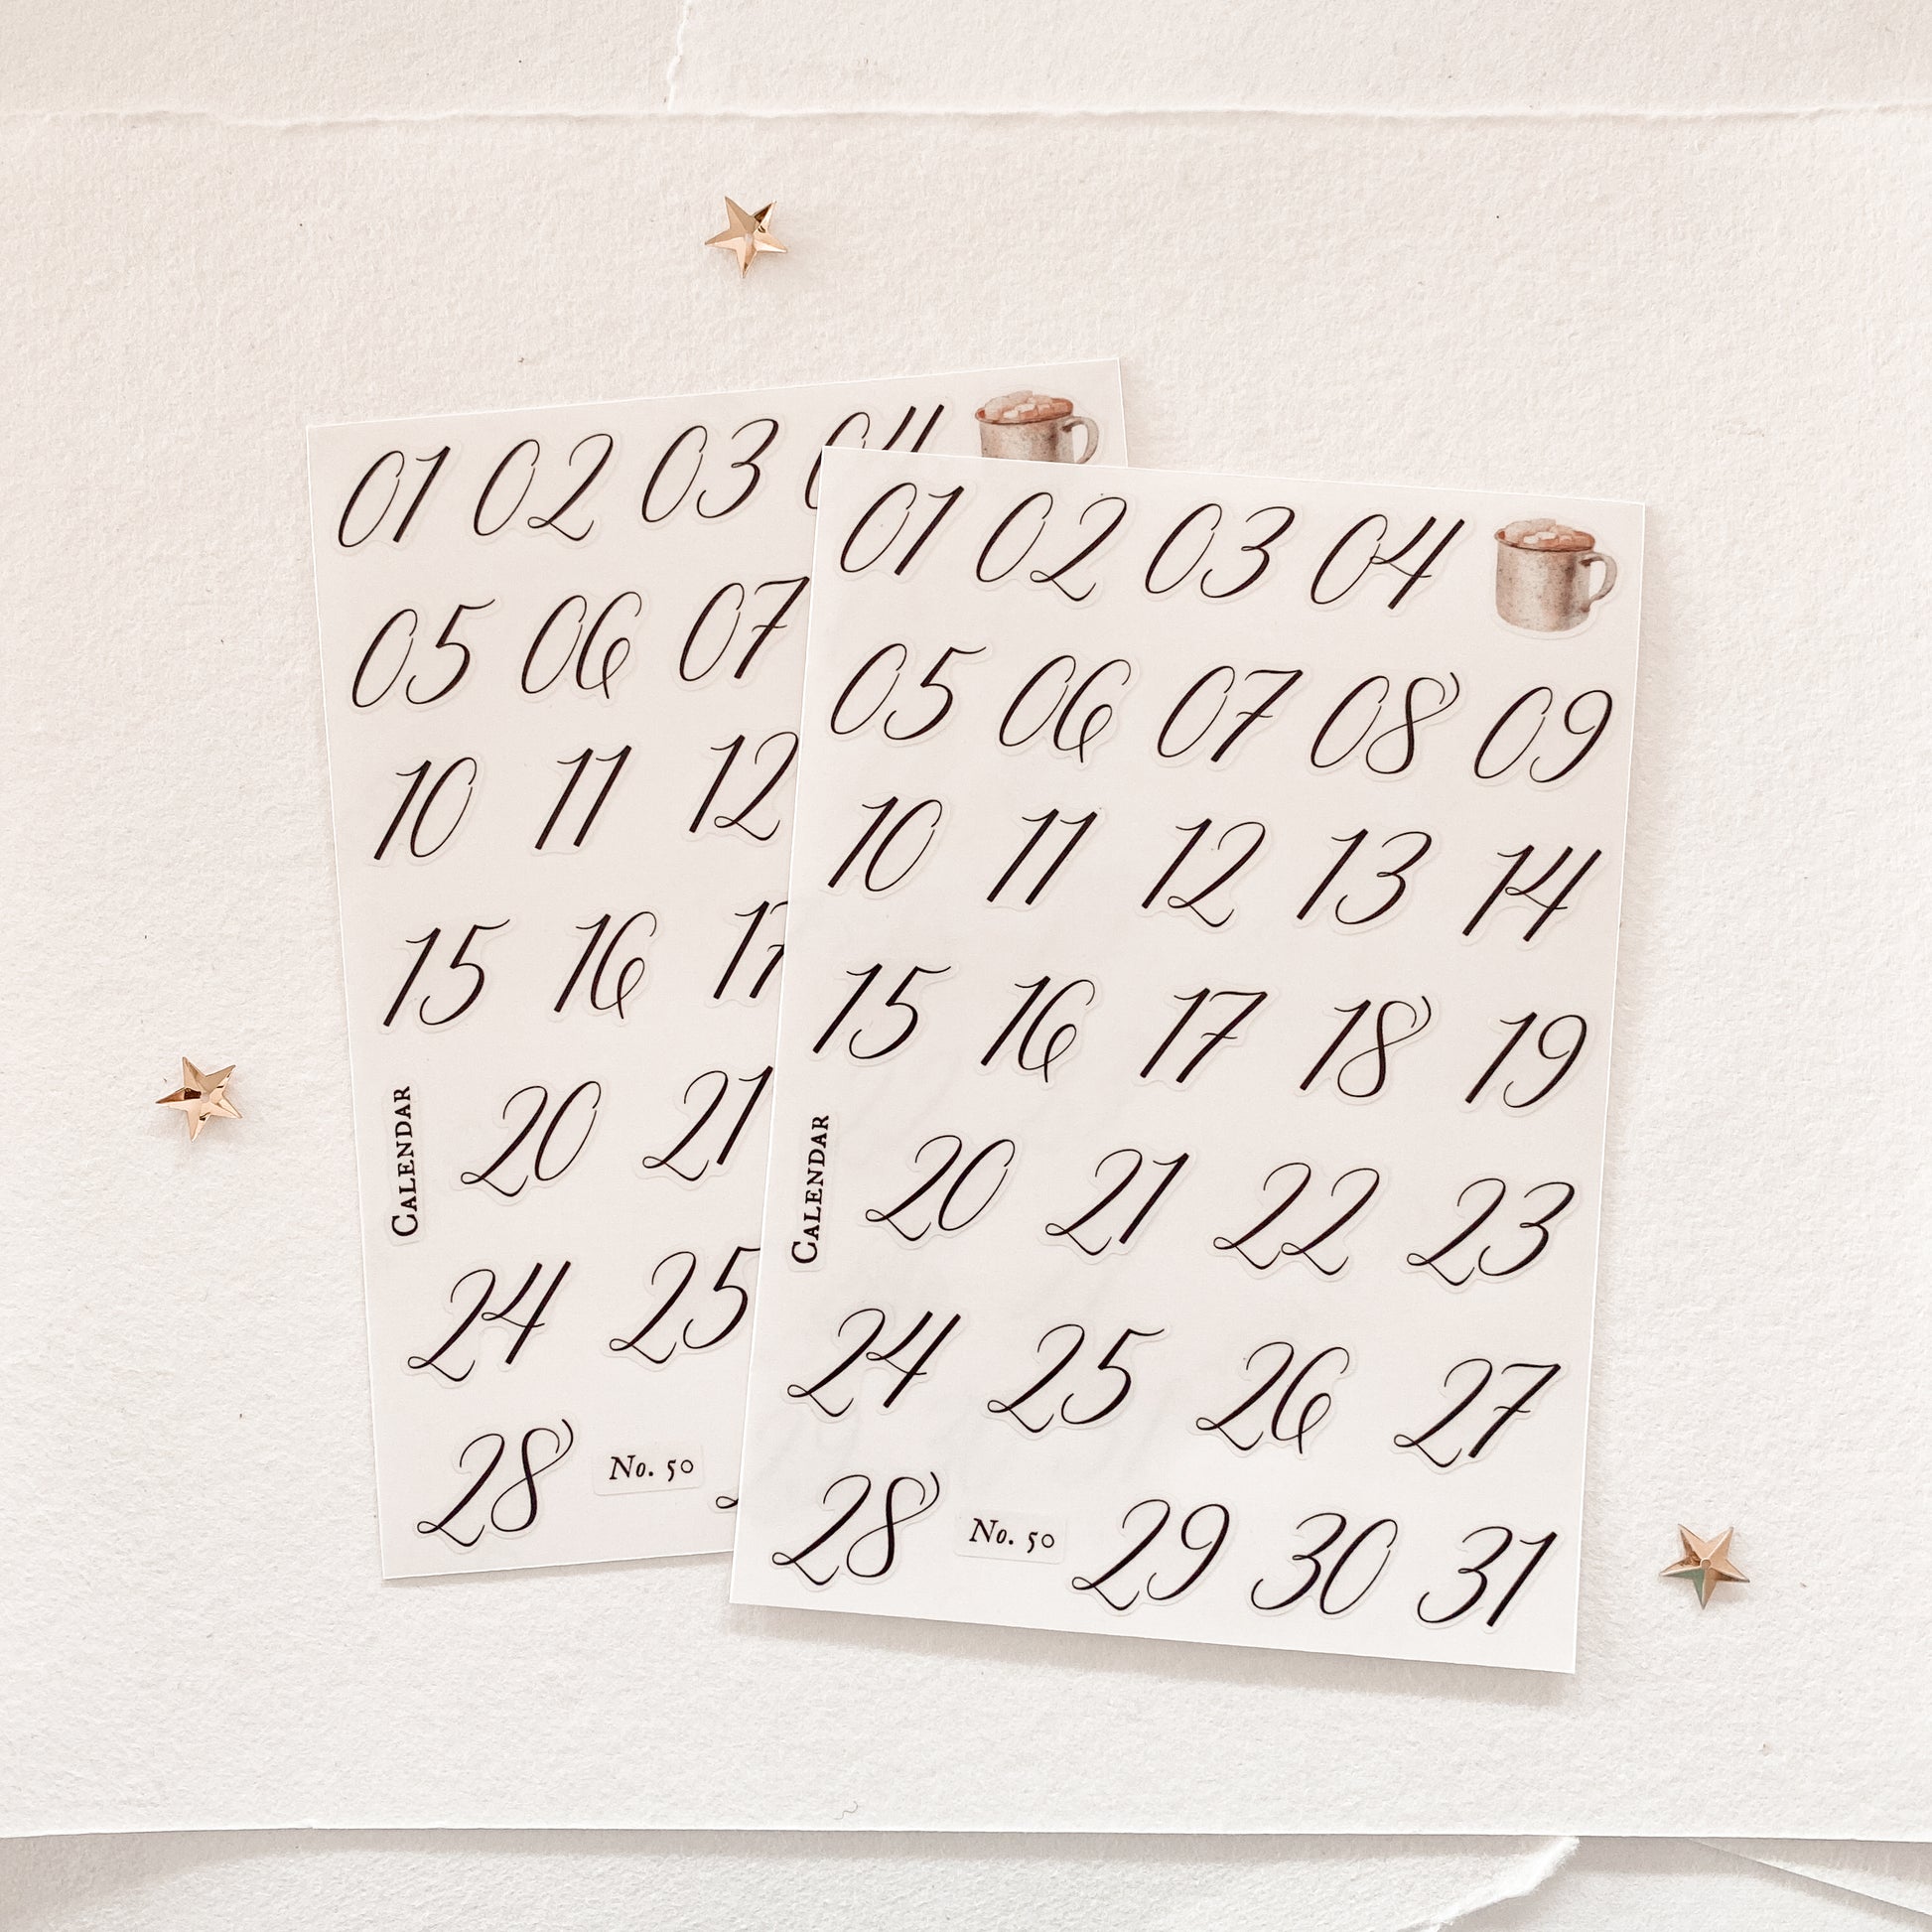 01 02 03 04
05 06 07
10 11 12
15 16 17
CALENDAR
20 21
24 25
28 No. 50
01 02 03 04
05 06 07 08 09
10 11 12 13 14
15 16 17 18 19
CALENDAR
20 21 22 23
24 25 26 27
28 No. 50 29 30 31